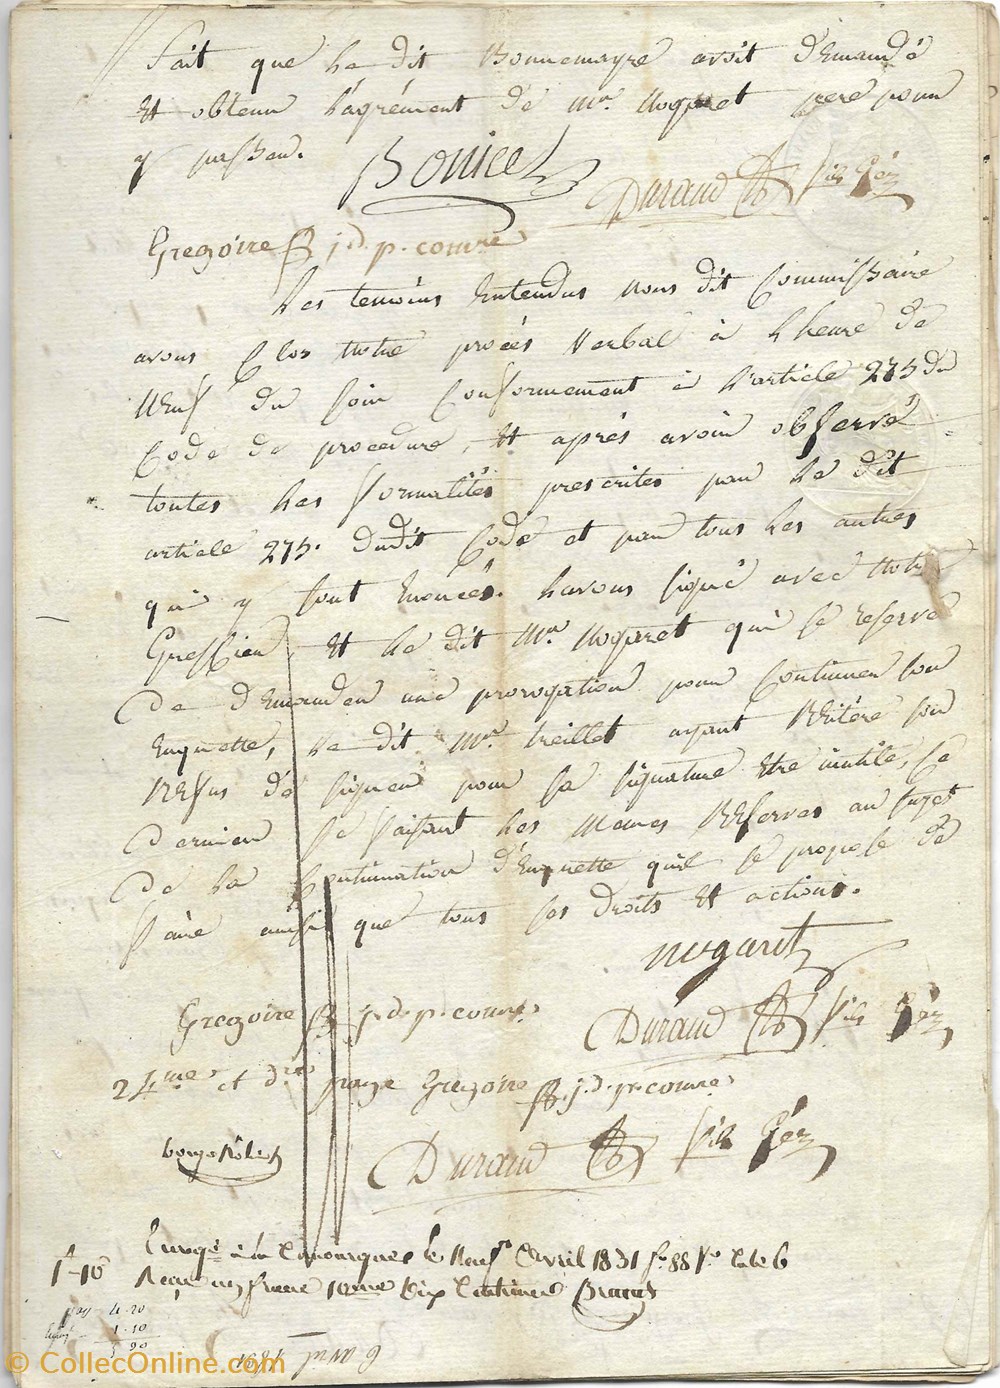 fait que le dit Bonnemayre avoit demandé
et obtenu l'agrément de Mr. Nogaret pere pour
y passer. Bonicel
Durand fils Gér
Gregoire j.d.p. comre
Les temoins entendus nous dit Commissaire
avons clos notre procés verbal à l'heure de
neuf du soir conformement à l'article 275 du
Code de procedure, et aprés avoir observé
toutes les formalités prescrites par le dit
article 275. dudit Code et par tous les autres
qui y sont enoncés. l'avons signé avec notre
Greffier, et le dit Mr Nogaret qui se reserve
de demander une prorogation pour continuer son
enquette, le dit Mr. treillet ayant réitéré son
refus de signer pour sa signature etre inutile, ce
dernier se faisant les memes reserves au sujet
de la continuation d'enquette qu'il se propose de
faire ainsi que tous ses droits et actions.
nogaret
Gregoire j.d.p. comre
Durand fils Gér
24mes et dre page Gregoire j.d.p. comre
Durand fils Gér
Enregé à la Canourgue le neuf avril 1831 fo 88 vo Case 6
1-10
Reçu un franc 10me dix centimes
pay 4.20
1.10
5.30
9 avril 1831
© CollecOnline.com